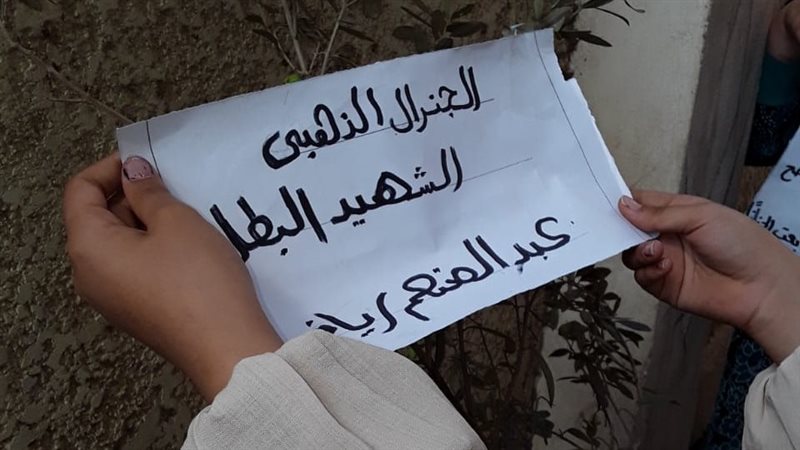 الجنرال الذهبى
الشهيد البطل
عبد المنعم رياض